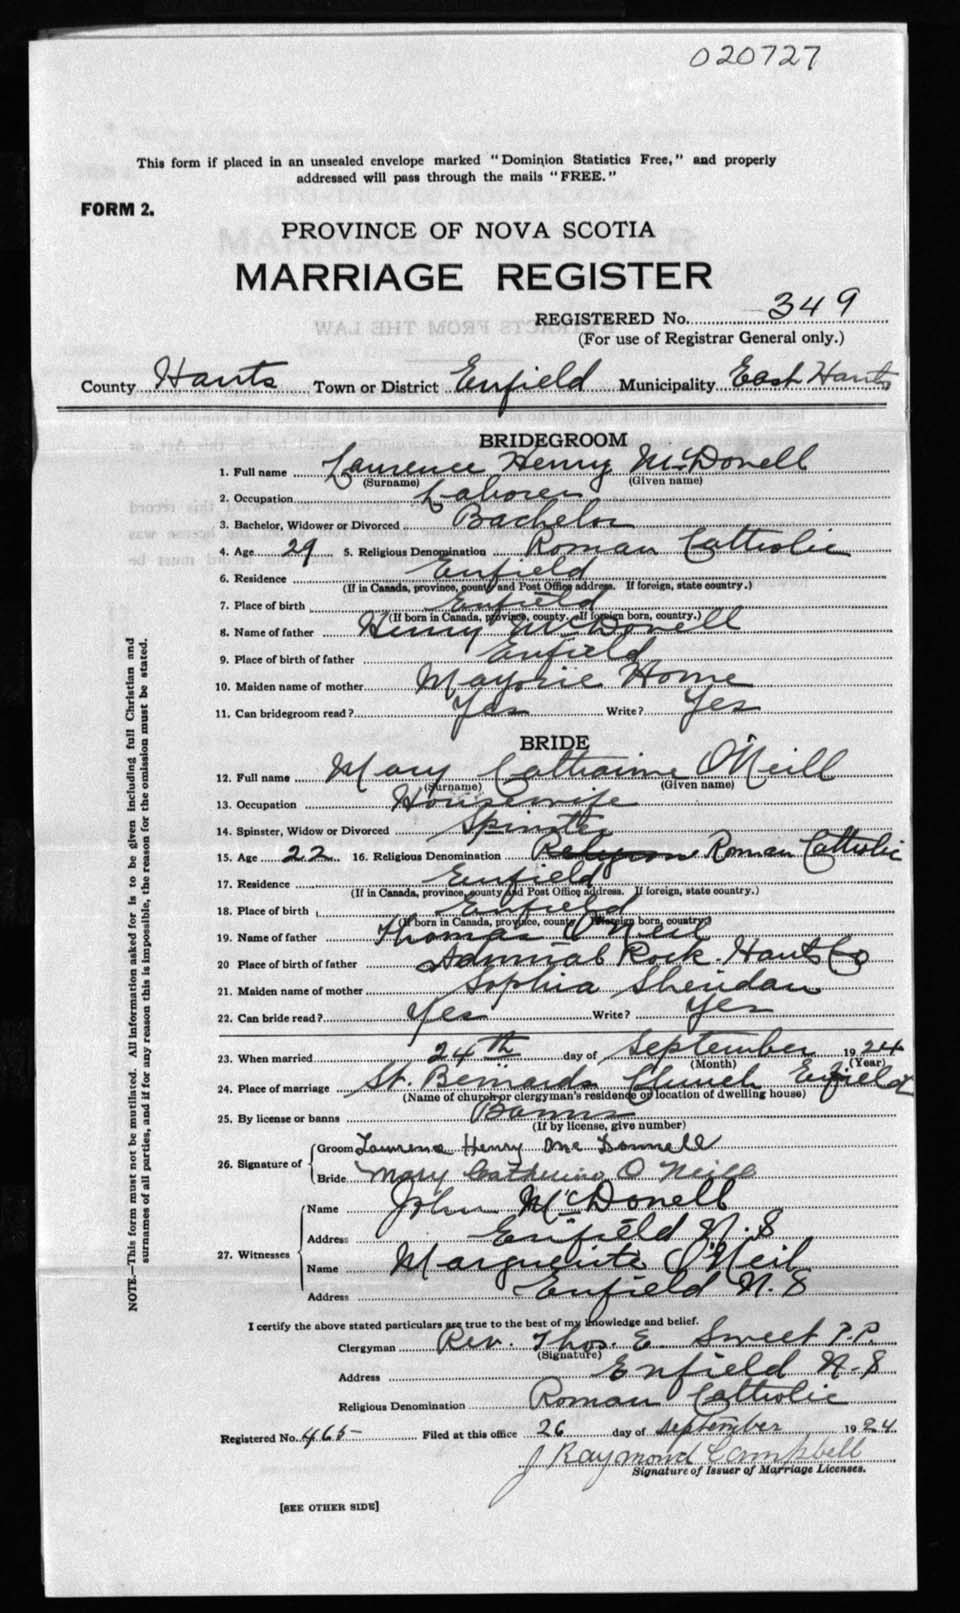 020727
This form if placed in an unsealed envelope marked "Dominion Statistics Free," and properly
addressed will pass through the mails "FREE."
FORM 2.
PROVINCE OF NOVA SCOTIA
MARRIAGE REGISTER
REGISTERED No. 349
(For use of Registrar General only.)
County Hants Town or District Enfield Municipality East Hants
BRIDEGROOM
1. Full name Laurence Henry McDonell
(Surname) (Given name)
2. Occupation Laborer
3. Bachelor, Widower or Divorced Bachelor
4. Age 29 5. Religious Denomination Roman Catholic
6. Residence Enfield
(If in Canada, province, county and Post Office address. If foreign, state country.)
7. Place of birth Enfield
(If born in Canada, province, county. If foreign born, country.)
8. Name of father Henry McDonell
9. Place of birth of father Enfield
10. Maiden name of mother Marjorie Horne
11. Can bridegroom read? Yes Write? Yes
BRIDE
12. Full name Mary Catharine O'Neill
(Surname) (Given name)
13. Occupation Housewife
14. Spinster, Widow or Divorced Spinster
15. Age 22 16. Religious Denomination Religious Roman Catholic
17. Residence Enfield
(If in Canada, province, county and Post Office address. If foreign, state country.)
18. Place of birth Enfield
(If born in Canada, province, county. If foreign born, country)
19. Name of father Thomas O'Neil
20 Place of birth of father Admiral Rock. Hants Co
21. Maiden name of mother Sophia Sheridan
22. Can bride read? Yes Write? Yes
23. When married 24th day of September 1924
(Month) (Year)
24. Place of marriage St. Bernards Church Enfield
(Name of church or clergyman's residence or location of dwelling house)
25. By license or banns Banns
(If by license, give number)
26. Signature of Groom Laurence Henry Mc Donnell
Bride Mary Catherine O'Neill
27. Witnesses Name John McDonell
Address Enfield N.S
Name Marguerite O'Neil
Address Enfield N.S
I certify the above stated particulars are true to the best of my knowledge and belief.
Clergyman Rev. Thos. E. Sweet P.P.
(Signature)
Address Enfield N.S
Religious Denomination Roman Catholic
Registered No. 465 Filed at this office 26 day of September 1924
J Raymond Campbell
Signature of Issuer of Marriage Licenses.
[SEE OTHER SIDE]
NOTE.—This form must not be mutilated. All information asked for is to be given including full Christian and
surnames of all parties, and if for any reason this is impossible, the reason for the omission must be stated.